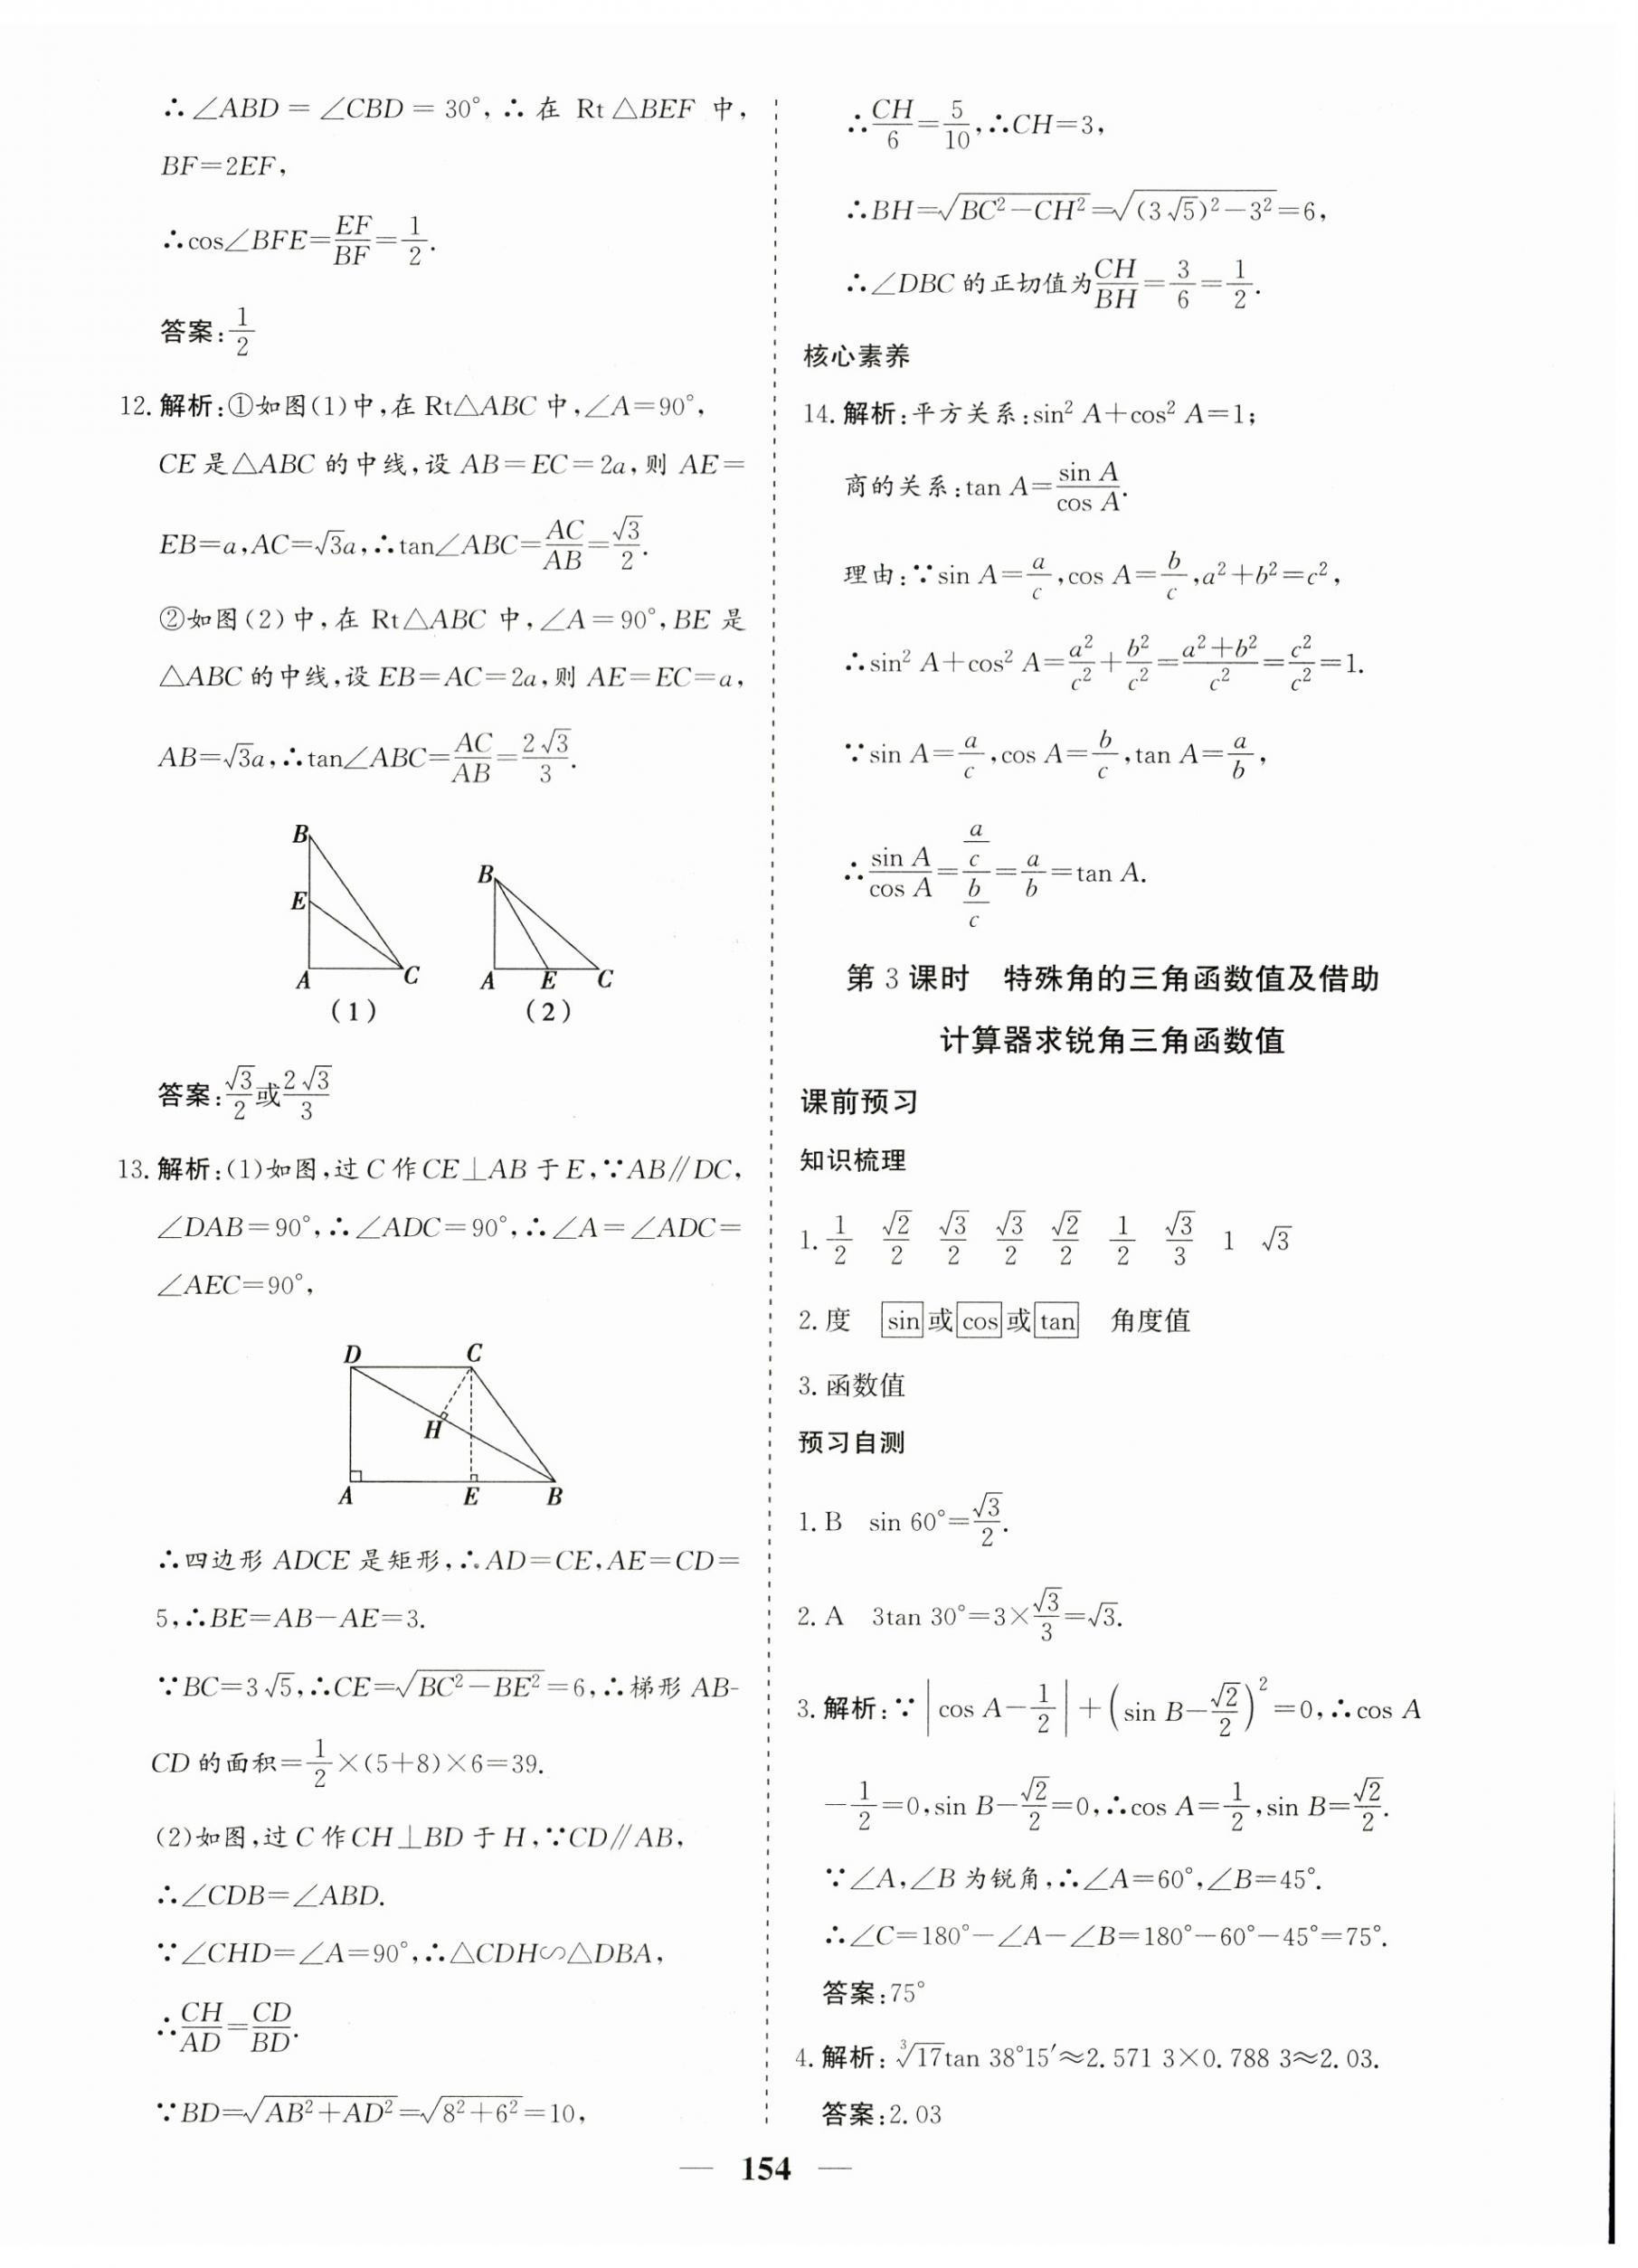 ∴∠ABD=∠CBD=30°,∴在 Rt△BEF 中,
BF=2EF,
∴cos∠BFE=EF/BF=1/2.
答案:1/2
12.解析:①如图(1)中,在 Rt△ABC 中,∠A=90°,
CE 是△ABC 的中线,设 AB=EC=2a,则 AE=
EB=a,AC=√3a,∴tan∠ABC=AC/AB=√3/2.
②如图(2)中,在 Rt△ABC 中,∠A=90°,BE 是
△ABC 的中线,设 EB=AC=2a,则 AE=EC=a,
AB=√3a,∴tan∠ABC=AC/AB=2√3/3.
B
E
A
C
(1)
B
A
E
C
(2)
答案:√3/2或2√3/3
13.解析:(1)如图,过 C 作 CE⊥AB 于 E,∵AB∥DC,
∠DAB=90°,∴∠ADC=90°,∴∠A=∠ADC=
∠AEC=90°,
D
C
H
A
E
B
∴四边形 ADCE 是矩形,∴AD=CE,AE=CD=
5,∴BE=AB-AE=3.
∵BC=3√5,∴CE=√(BC²-BE²)=6,∴梯形 AB-
CD 的面积=1/2×(5+8)×6=39.
(2)如图,过 C 作 CH⊥BD 于 H,∵CD∥AB,
∴∠CDB=∠ABD.
∵∠CHD=∠A=90°,∴△CDH∽△DBA,
∴CH/AD=CD/BD.
∵BD=√(AB²+AD²)=√(8²+6²)=10,
∴CH/6=5/10,∴CH=3,
∴BH=√(BC²-CH²)=√((3√5)²-3²)=6,
∴∠DBC 的正切值为CH/BH=3/6=1/2.
核心素养
14.解析:平方关系:sin² A+cos² A=1;
商的关系:tan A=sin A/cos A.
理由:∵sin A=a/c,cos A=b/c,a²+b²=c²,
∴sin² A+cos² A=a²/c²+b²/c²=(a²+b²)/c²=c²/c²=1.
∵sin A=a/c,cos A=b/c,tan A=a/b,
∴sin A/cos A=(a/c)/(b/c)=a/b=tan A.
第 3 课时 特殊角的三角函数值及借助
计算器求锐角三角函数值
课前预习
知识梳理
1. 1/2 √2/2 √3/2 √3/2 √2/2 1/2 √3/3 1 √3
2.度 sin或cos或tan 角度值
3.函数值
预习自测
1.B sin 60°=√3/2.
2.A 3tan 30°=3×√3/3=√3.
3.解析:∵|cos A-1/2|+(sin B-√2/2)²=0,∴cos A
-1/2=0,sin B-√2/2=0,∴cos A=1/2,sin B=√2/2.
∵∠A,∠B 为锐角,∴∠A=60°,∠B=45°.
∴∠C=180°-∠A-∠B=180°-60°-45°=75°.
答案:75°
4.解析:∛17tan 38°15′≈2.571 3×0.788 3≈2.03.
答案:2.03
— 154 —